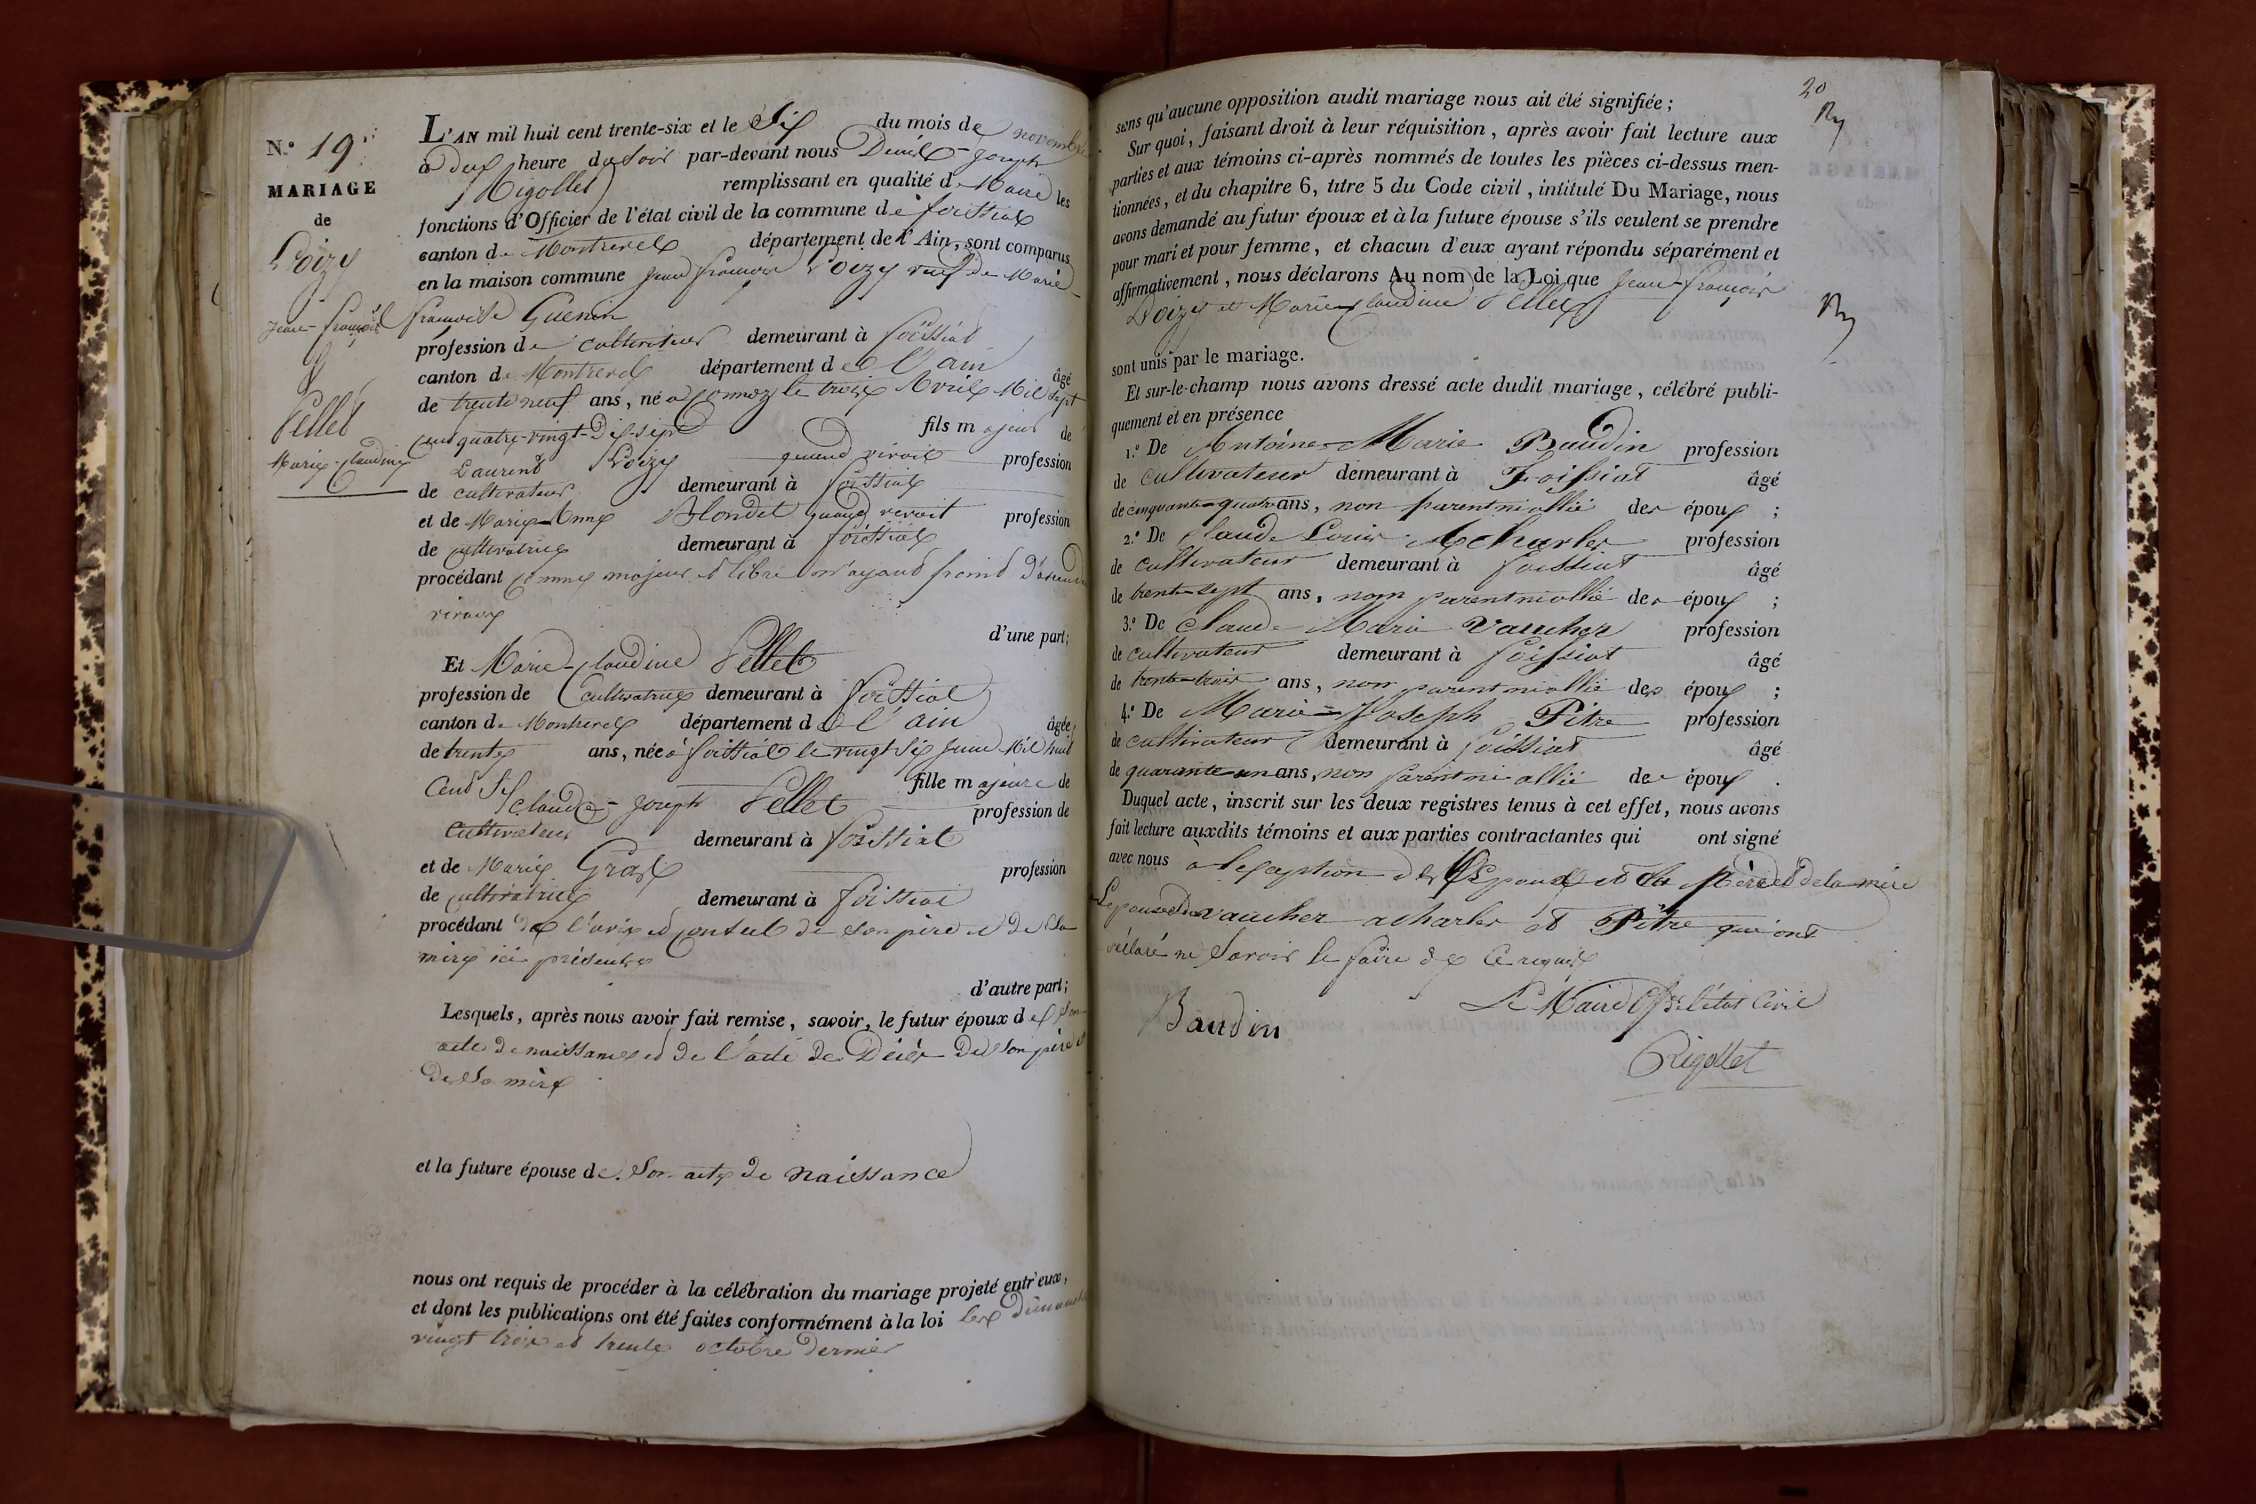 N.º 19.
MARIAGE
de
Loizy
Jean-françois
&
Pellet
Marie-claudine
L'AN mil huit cent trente-six et le Six du mois de novembre
à deux heure du soir par-devant nous Denis-Joseph
Rigollet remplissant en qualité de Maire les
fonctions d'Officier de l'état civil de la commune de foissiat
canton de Montrevel département de l'Ain, sont comparus
en la maison commune Jean françois Loizy veuf de Marie-
françoise Guenin
profession de cultivateur demeurant à foissiat
canton de Montrevel département de l'ain âgé
de trente neuf ans, né à le trois Avril Mil sept
cent quatre-vingt-Dix-sept fils majeur de
Laurent Loizy quand vivoit profession
de cultivateur demeurant à foissiat
et de Marie-Anne Blondet quand vivoit profession
de cultivatrice demeurant à foissiat
procédant comme majeur et libre n'ayant point d'ascendants
vivants
d'une part;
Et Marie-claudine Pellet
profession de Cultivatrice demeurant à foissiat
canton de Montrevel département de l'ain âgée
de trente ans, née à foissiat le vingt six Juin Mil huit
Cent Six fille majeure de
claude-Joseph Pellet profession de
Cultivateur demeurant à foissiat
et de Marie Gras profession
de cultivatrice demeurant à foissiat
procédant de l'avis et conseil de son père et de sa
mère ici présents
d'autre part;
Lesquels, après nous avoir fait remise, savoir, le futur époux de son
acte de naissance et de l'acte de Décès de son père et
de sa mère
et la future épouse de son acte de naissance
nous ont requis de procéder à la célébration du mariage projeté entr'eux,
et dont les publications ont été faites conformément à la loi les dimanches
vingt trois et trente octobre dernier
20
sans qu'aucune opposition audit mariage nous ait été signifiée;
Sur quoi, faisant droit à leur réquisition, après avoir fait lecture aux
parties et aux témoins ci-après nommés de toutes les pièces ci-dessus men-
tionnées, et du chapitre 6, titre 5 du Code civil, intitulé Du Mariage, nous
avons demandé au futur époux et à la future épouse s'ils veulent se prendre
pour mari et pour femme, et chacun d'eux ayant répondu séparément et
affirmativement, nous déclarons Au nom de la Loi que Jean-françois
Loizy et Marie-claudine Pellet
sont unis par le mariage.
Et sur-le-champ nous avons dressé acte dudit mariage, célébré publi-
quement et en présence
1.º De Antoine-Marie Baudin profession
de cultivateur demeurant à Foissiat âgé
de cinquante-quatre ans, non parent ni allié des époux;
2.º De Claude Louis Acharles profession
de cultivateur demeurant à foissiat âgé
de trente-sept ans, non parent ni allié des époux;
3.º De Claude Marie Vaucher profession
de cultivateur demeurant à foissiat âgé
de trente-trois ans, non parent ni allié des époux;
4.º De Marie-Joseph Pitre profession
de cultivateur demeurant à foissiat âgé
de quarante-un ans, non parent ni allié des époux.
Duquel acte, inscrit sur les deux registres tenus à cet effet, nous avons
fait lecture auxdits témoins et aux parties contractantes qui ont signé
avec nous à l'exception des Epoux et du Père et de la mère
vaucher acharles et Pitre qui ont
déclaré ne savoir le faire de ce requis
Le Maire Off. de l'état Civil
Baudin
Rigollet